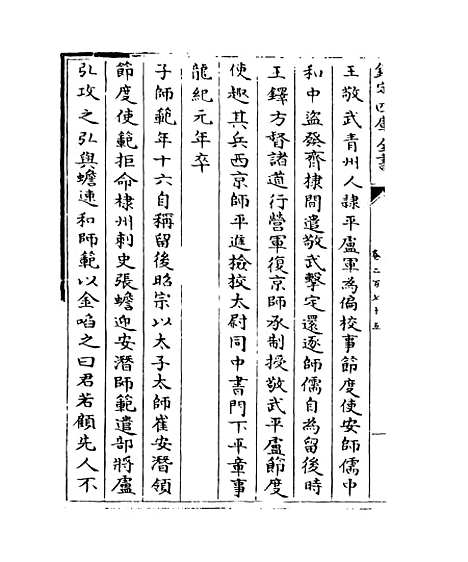 欽定四庫全書
卷二百七十五
王敬武青州人隷平盧軍為偏校事節度使安師儒中
和中盜發齊棣間遣敬武擊定還逐師儒自為留後時
王鐸方督諸道行營軍復京師承制授敬武平盧節度
使趣其兵西京師平進檢校太尉同中書門下平章事
龍紀元年卒
子師範年十六自稱留後昭宗以太子太師崔安潛領
節度使範拒命棣州刺史張蟾迎安潛師範遣部將盧
弘攻之弘與蟾連和師範以金啗之曰君若顧先人不